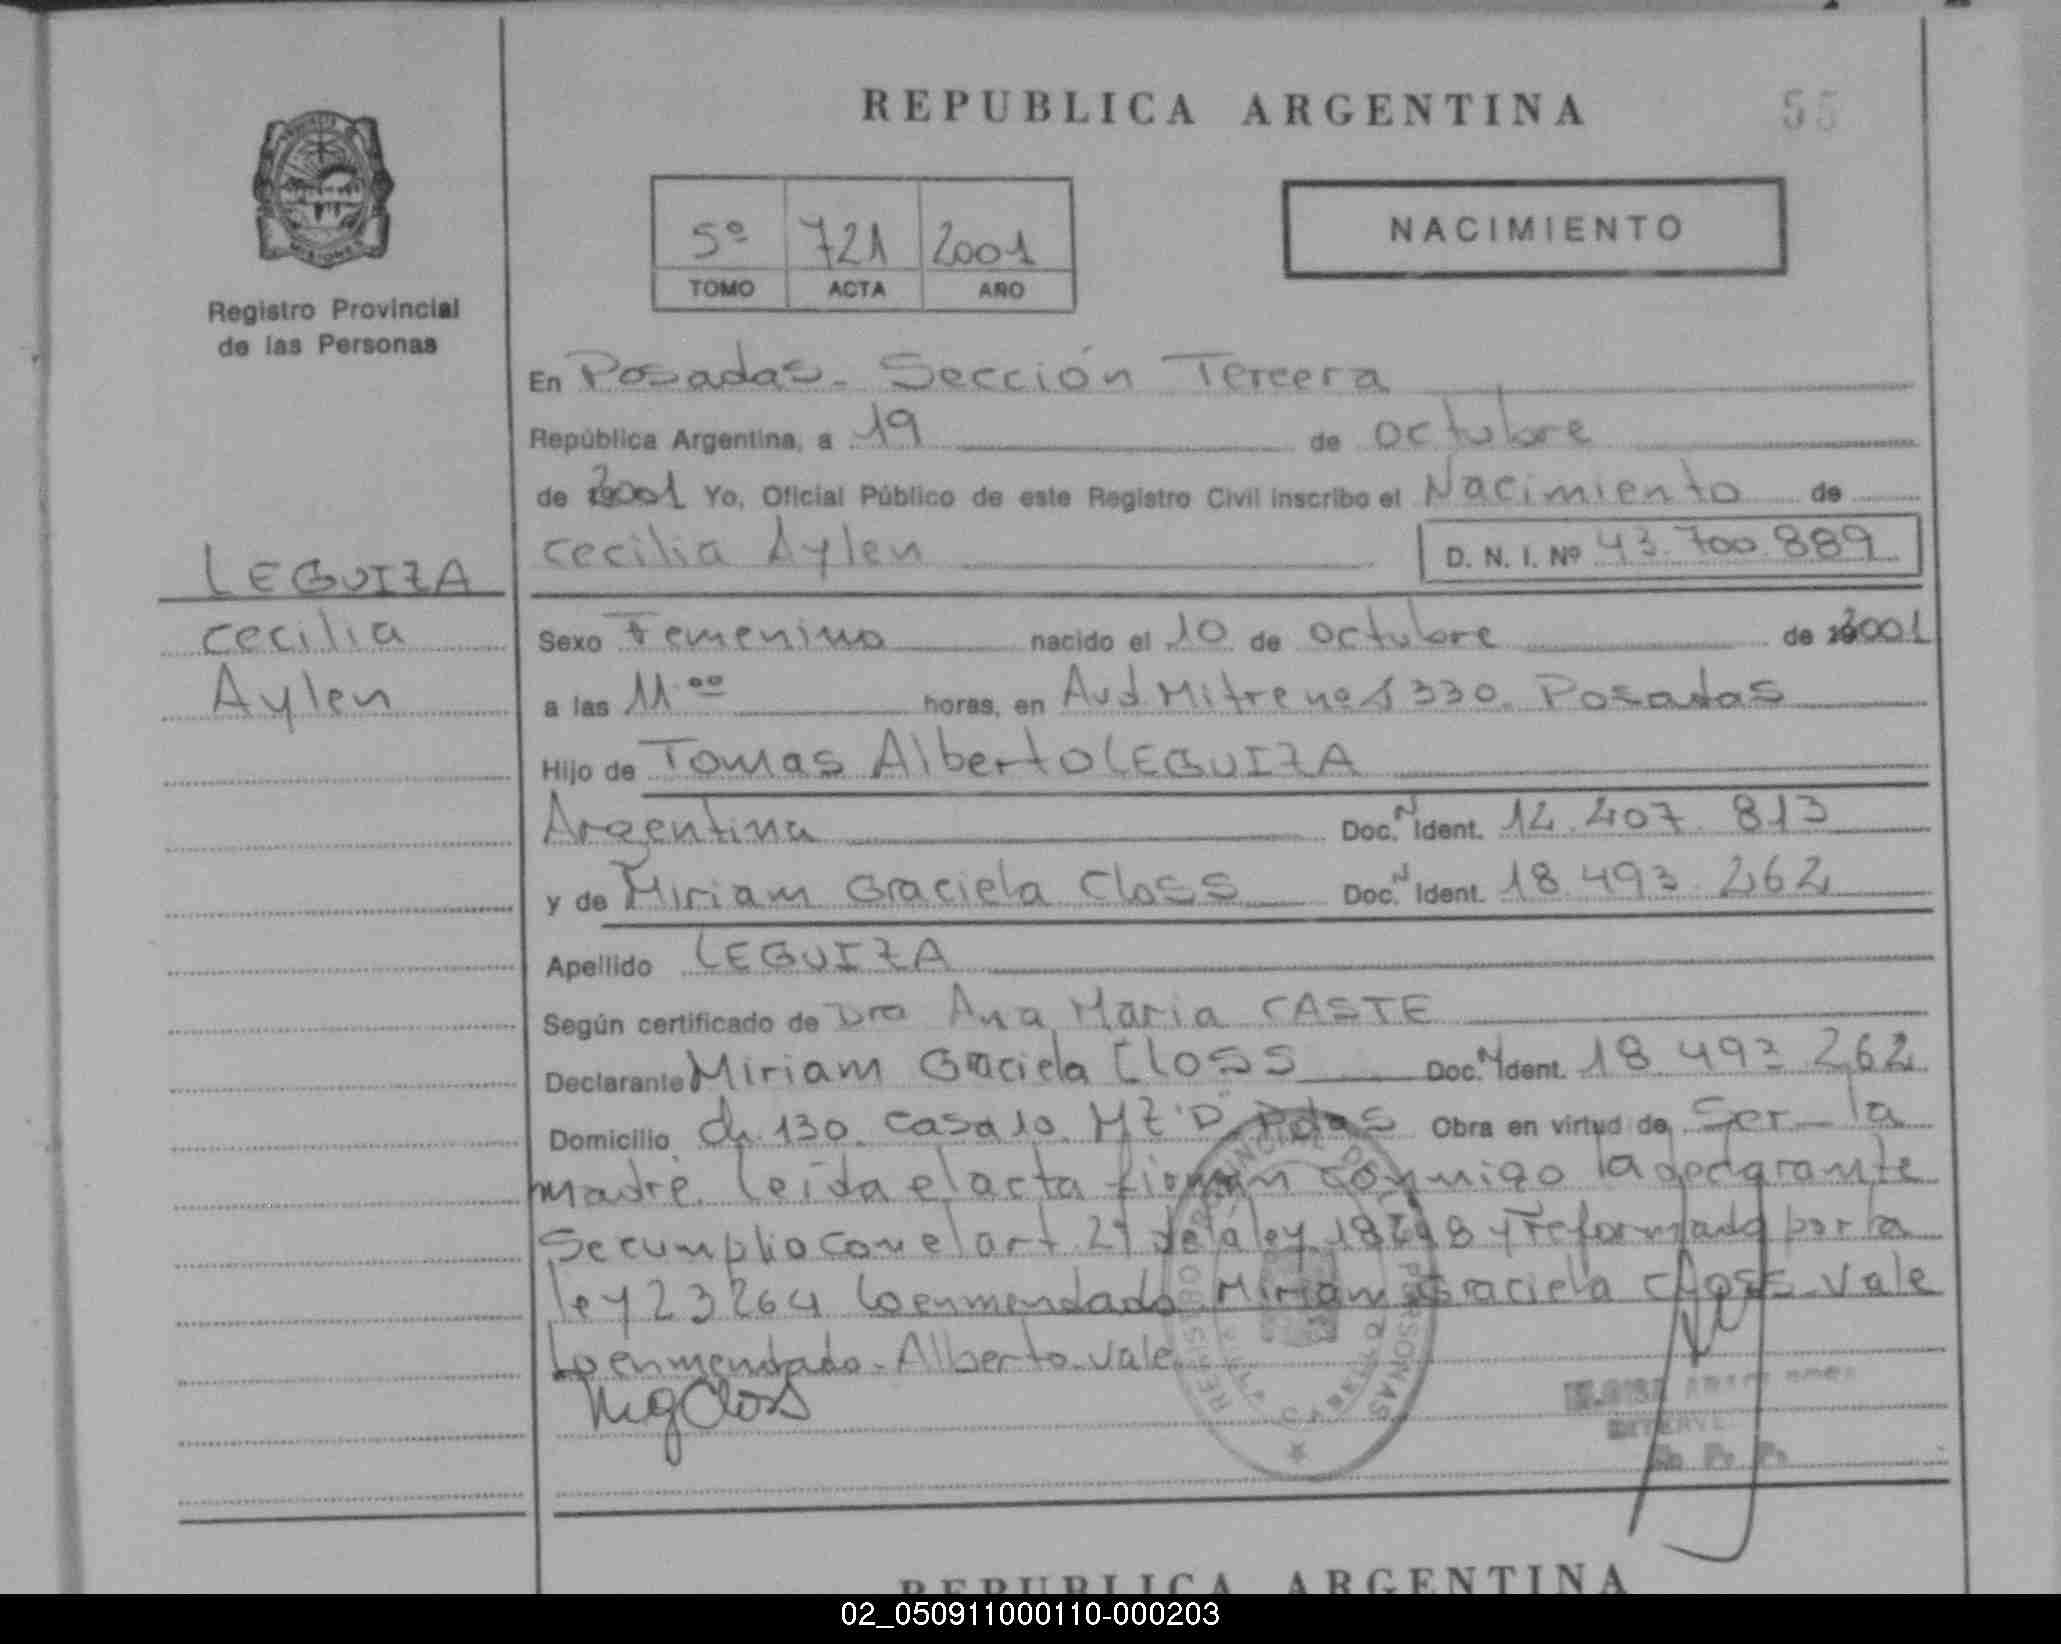 REPUBLICA ARGENTINA
55
5º 721 2001
TOMO ACTA AÑO
NACIMIENTO
Registro Provincial
de las Personas
En Posadas. Sección Tercera
República Argentina, a 19 de octubre
de 2001 Yo, Oficial Público de este Registro Civil inscribo el Nacimiento de
cecilia Aylen D. N. I. Nº 43.700.889
LEGUIZA
cecilia
Aylen
Sexo Femenino nacido el 10 de octubre de 2001
a las 11.00 horas, en Avd. Mitre nº 1330. Posadas
Hijo de Tomas Alberto LEGUIZA
Argentina Doc. N Ident. 14.407.813
y de Miriam Graciela Closs Doc. N Ident. 18.493.262
Apellido LEGUIZA
Según certificado de Dra Ana Maria CASTE
Declarante Miriam Graciela Closs Doc. N Ident. 18.493.262
Domicilio ch. 130. casa 10. MZ "D" Pdas Obra en virtud de Ser la
madre. leida el acta firman conmigo la
Se cumplio con el art. 27 de la ley 18248 y reformada por la
ley 23264 lo enmendado Miriam Graciela Closs. Vale
Lo enmendado. Alberto. vale.
MgCloss
REGISTRO PROVINCIAL DE LAS PERSONAS
REPUBLICA ARGENTINA
02_050911000110-000203